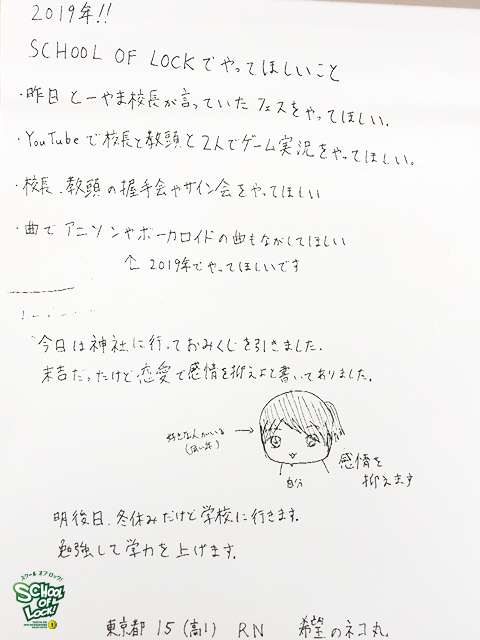 2019年!!
SCHOOL OF LOCKでやってほしいこと
・昨日とーやま校長が言っていたフェスをやってほしい.
・YouTubeで校長と教頭と2人でゲーム実況をやってほしい。
・校長、教頭の握手会やサイン会をやってほしい
・曲でアニソンやボーカロイドの曲もながしてほしい
↑ 2019年でやってほしいです
今日は神社に行っておみくじを引きました.
末吉だったけど恋愛で感情を抑えよと書いてありました。
好きな人がいる →
自分
感情を
抑えます
明後日、冬休みだけど学校に行きます。
勉強して学力を上げます.
スクール オブ ロック!
SCHOOL OF LOCK!
東京都 15(高1) RN 希望のネコ丸